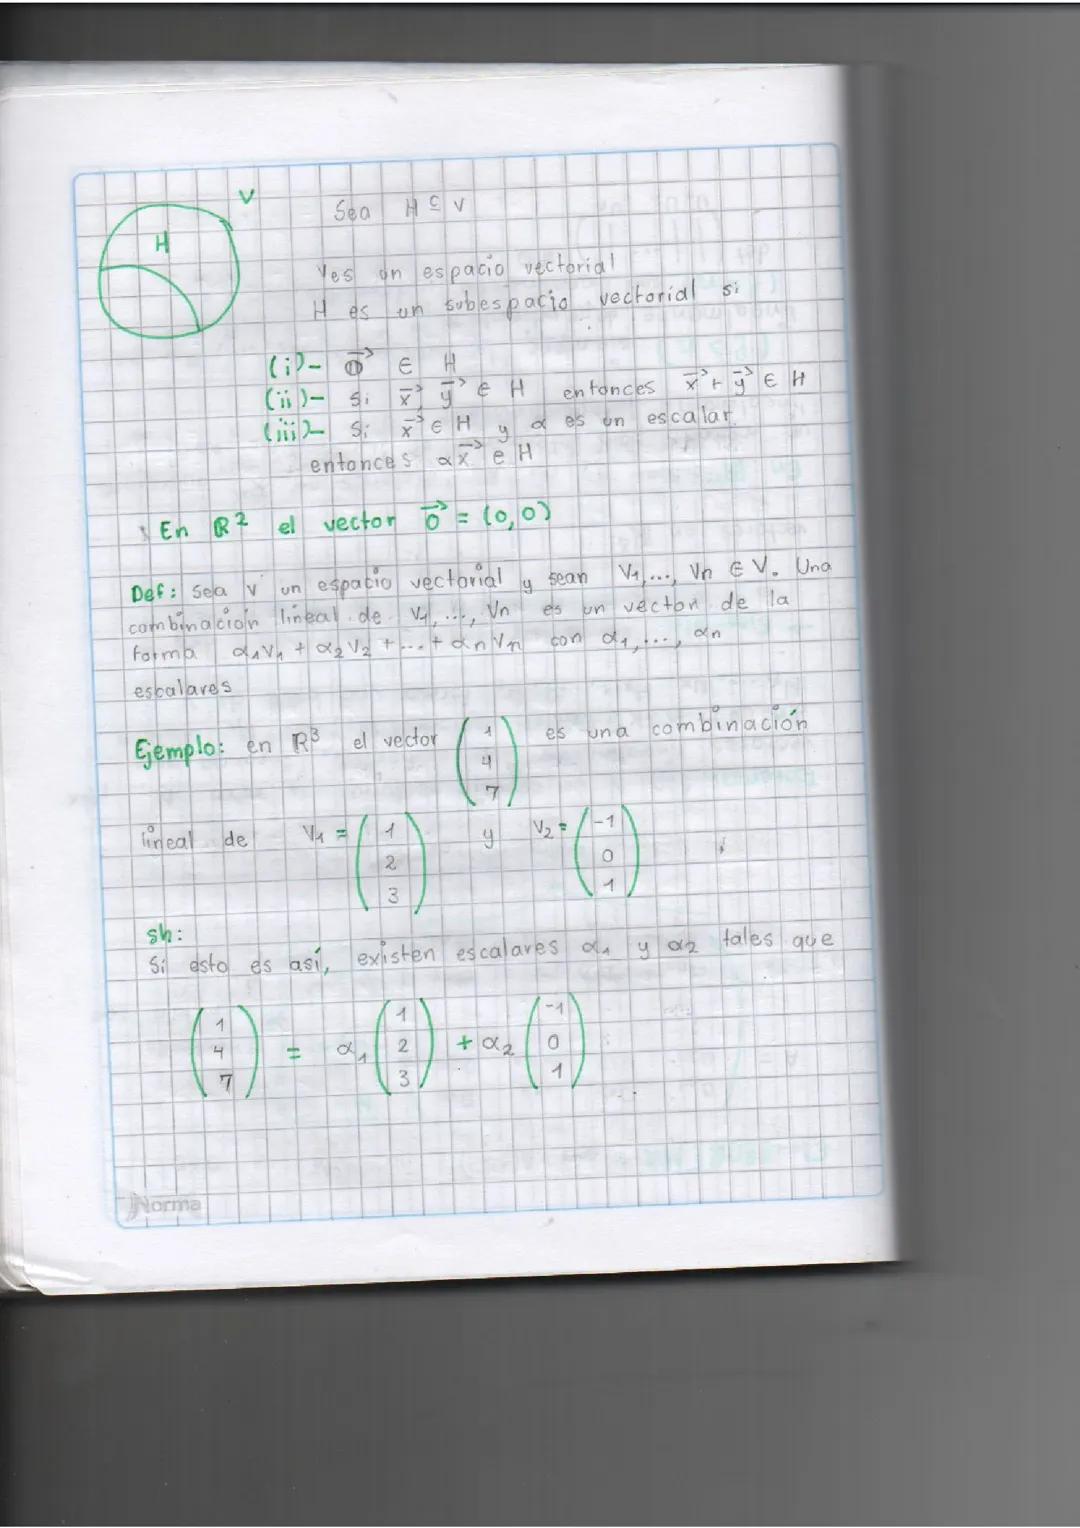 V
H
Sea H ⊆ V
V es un espacio vectorial
H es un subespacio vectorial si
(i)- 0⃗ ∈ H
(ii)- si x⃗, y⃗ ∈ H entonces x⃗ + y⃗ ∈ H
(iii)- Si x⃗ ∈ H y α es un escalar
entonces αx⃗ ∈ H
En ℝ² el vector 0⃗ = (0,0)
Def: Sea V un espacio vectorial y sean V₁,..., Vn ∈ V. Una
combinación lineal de V₁,..., Vn es un vector de la
forma α₁V₁ + α₂V₂ + ... + αnVn con α₁,..., αn
escalares
Ejemplo: en ℝ³ el vector (1 4 7) es una combinación
lineal de V₁ = (1 2 3) y V₂ = (-1 0 1)
sh:
Si esto es así, existen escalares α₁ y α₂ tales que
(1 4 7) = α₁ (1 2 3) + α₂ (-1 0 1)
Norma